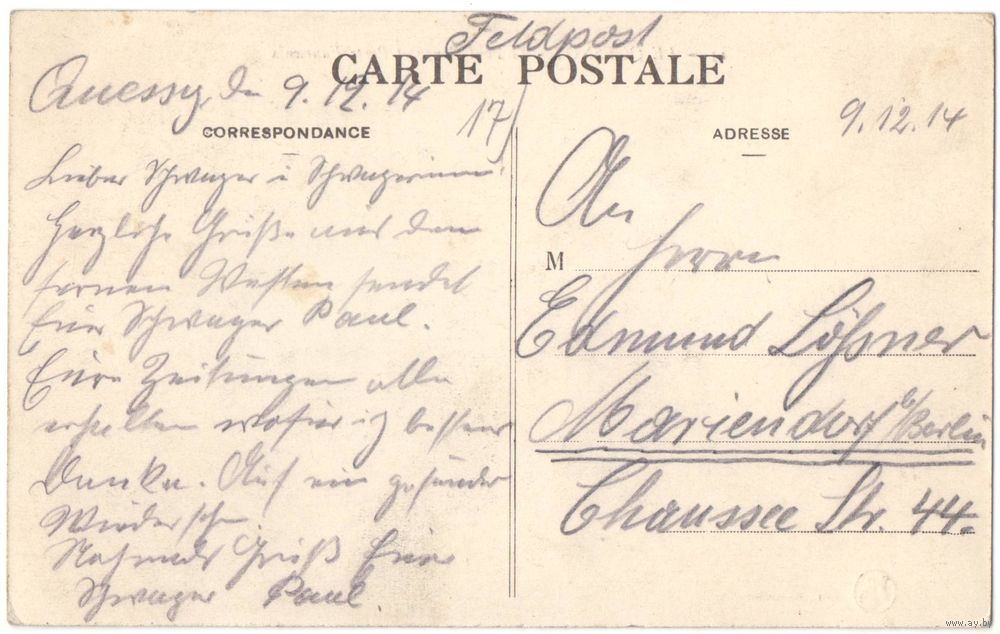 Feldpost
CARTE POSTALE
Quessy, d. 9.12.14
17)
CORRESPONDANCE
Lieber Schwager u Schwägerinn!
Herzliche Grüße aus dem
fernen Westen sendet
Euer Schwager Paul.
Eure Zeitungen alle
erhalten wofür ich bestens
Danke. Auf ein gesundes
Wiedersehn
Nochmals Gruß Euer
Schwager Paul
ADRESSE
9.12.14
An
M Herrn
Edmund Lößner
Mariendorf b/Berlin
Chaussee Str. 44.
www.ay.by